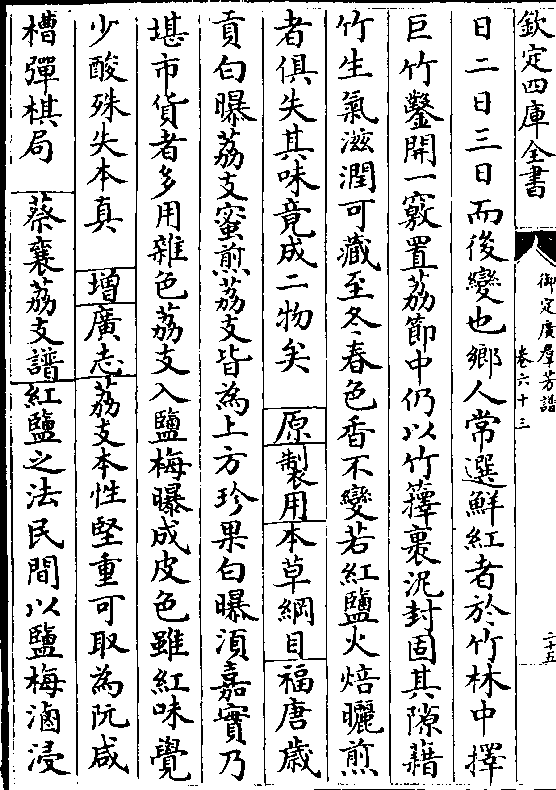 欽定四庫全書
御定廣群芳譜
卷六十三
二十五
日二日三日而後變也鄉人常選鮮紅者於竹林中擇
巨竹鑿開一竅置荔節中仍以竹籜裹泥封固其隙藉
竹生氣滋潤可藏至冬春色香不變若紅鹽火焙曬煎
者俱失其味竟成二物矣 原 製用 本草綱目 福唐歲
貢白曝荔支蜜煎荔支皆為上方珍果白曝湏嘉實乃
堪市貨者多用雜色荔支入鹽梅曝成皮色雖紅味覺
少酸殊失本真 增 廣志 荔支本性堅重可取為阮咸
槽彈棋局 蔡襄荔支譜 紅鹽之法民間以鹽梅滷浸